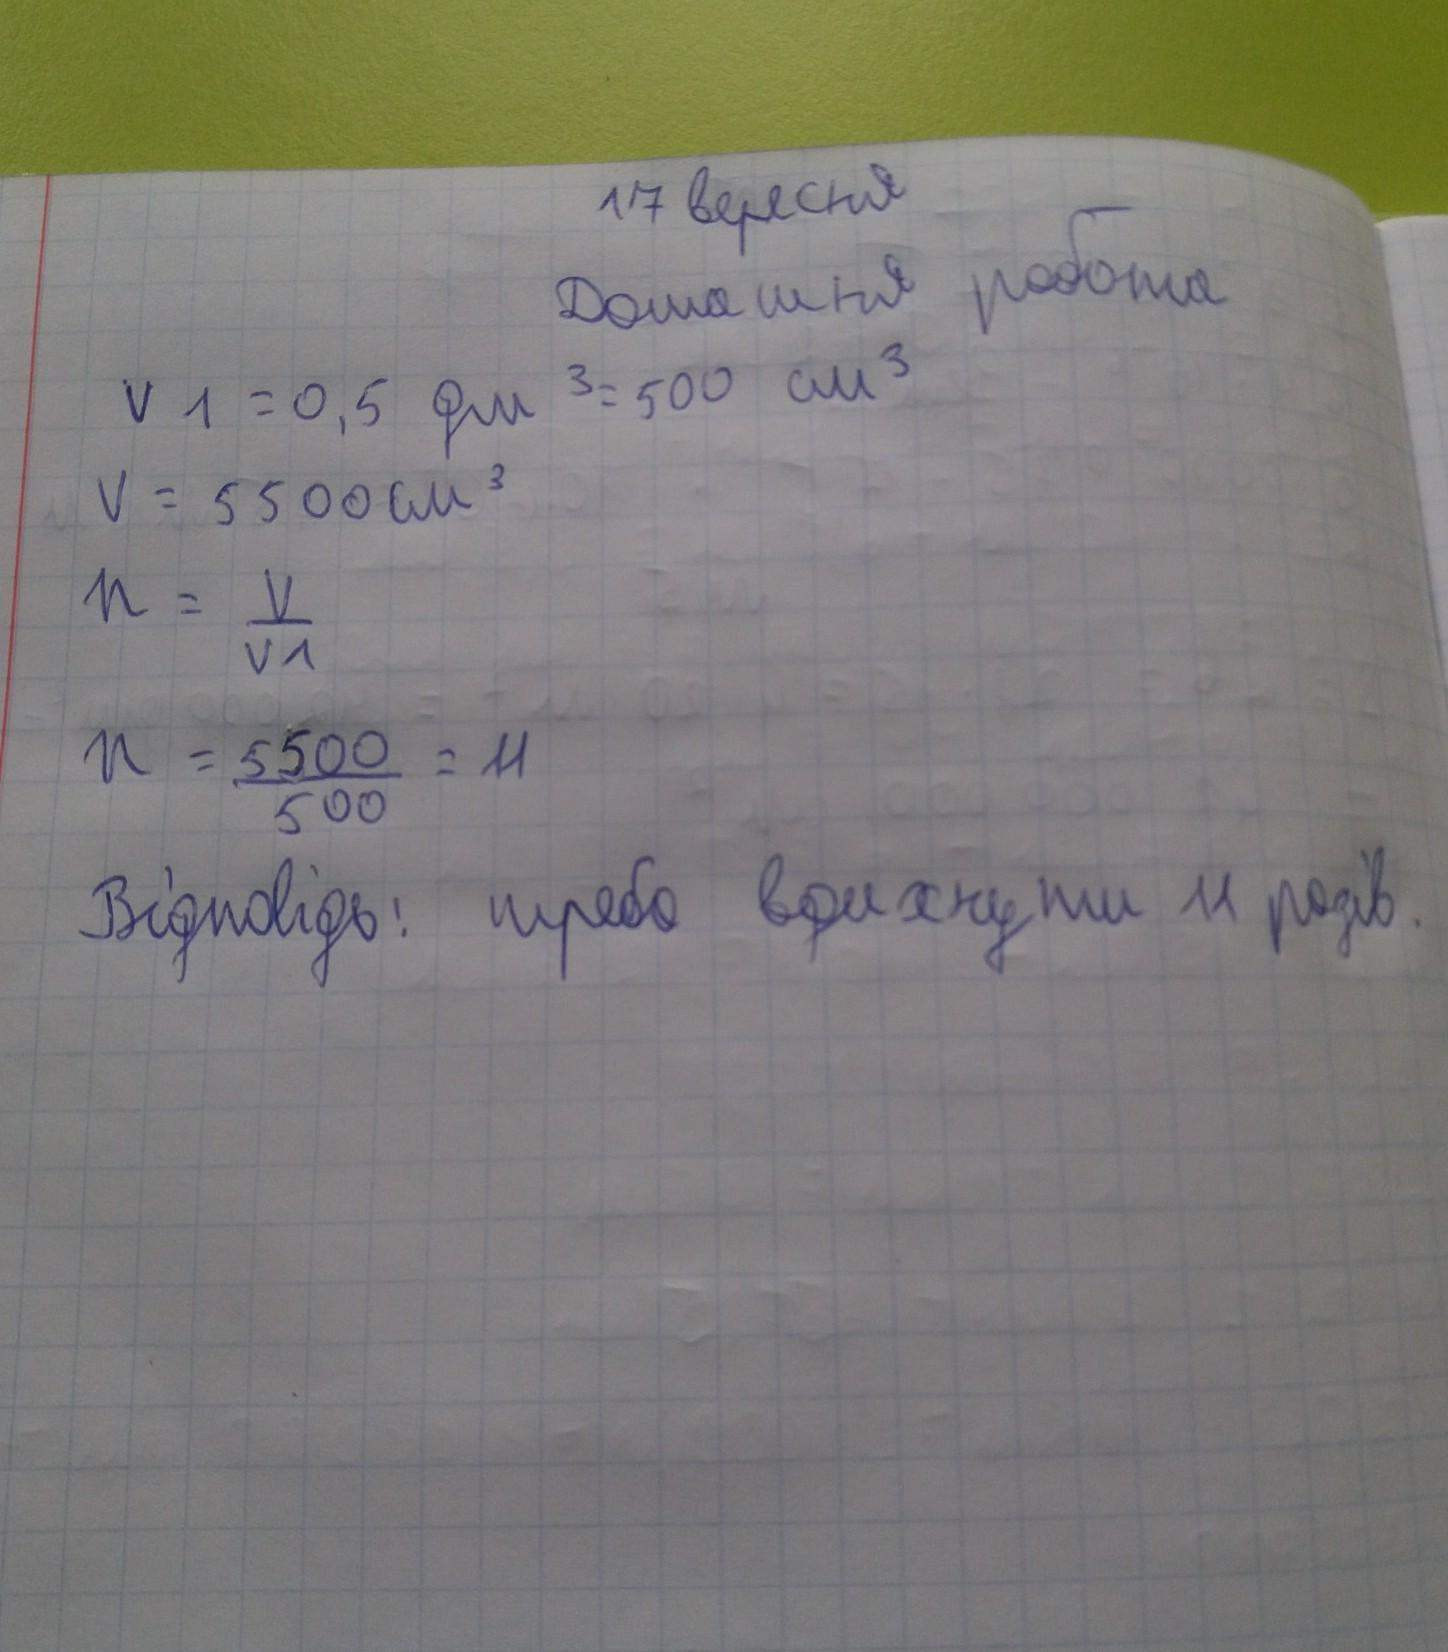 17 вересня
Домашня робота
V 1 = 0,5 дм ³ = 500 см³
V = 5500 см³
n = V
V1
n = 5500 = 11
500
Відповідь: треба вдихнути 11 разів.